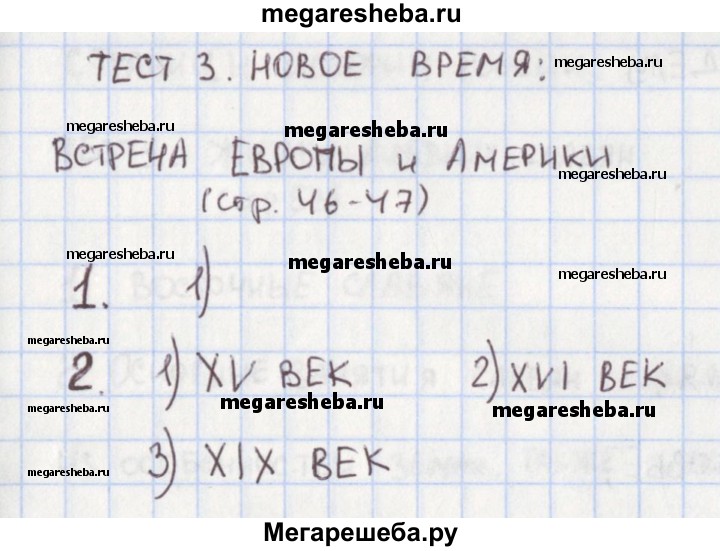 megaresheba.ru
ТЕСТ 3. НОВОЕ ВРЕМЯ:
megaresheba.ru
megaresheba.ru
megaresheba.ru
ВСТРЕЧА ЕВРОПЫ и АМЕРИКИ
megaresheba.ru
(стр. 46-47)
megaresheba.ru
megaresheba.ru
megaresheba.ru
1. 1)
megaresheba.ru
2. 1) XV ВЕК 2) XVI ВЕК
megaresheba.ru
megaresheba.ru
megaresheba.ru
3) XIX ВЕК
megaresheba.ru
Мегарешеба.ру